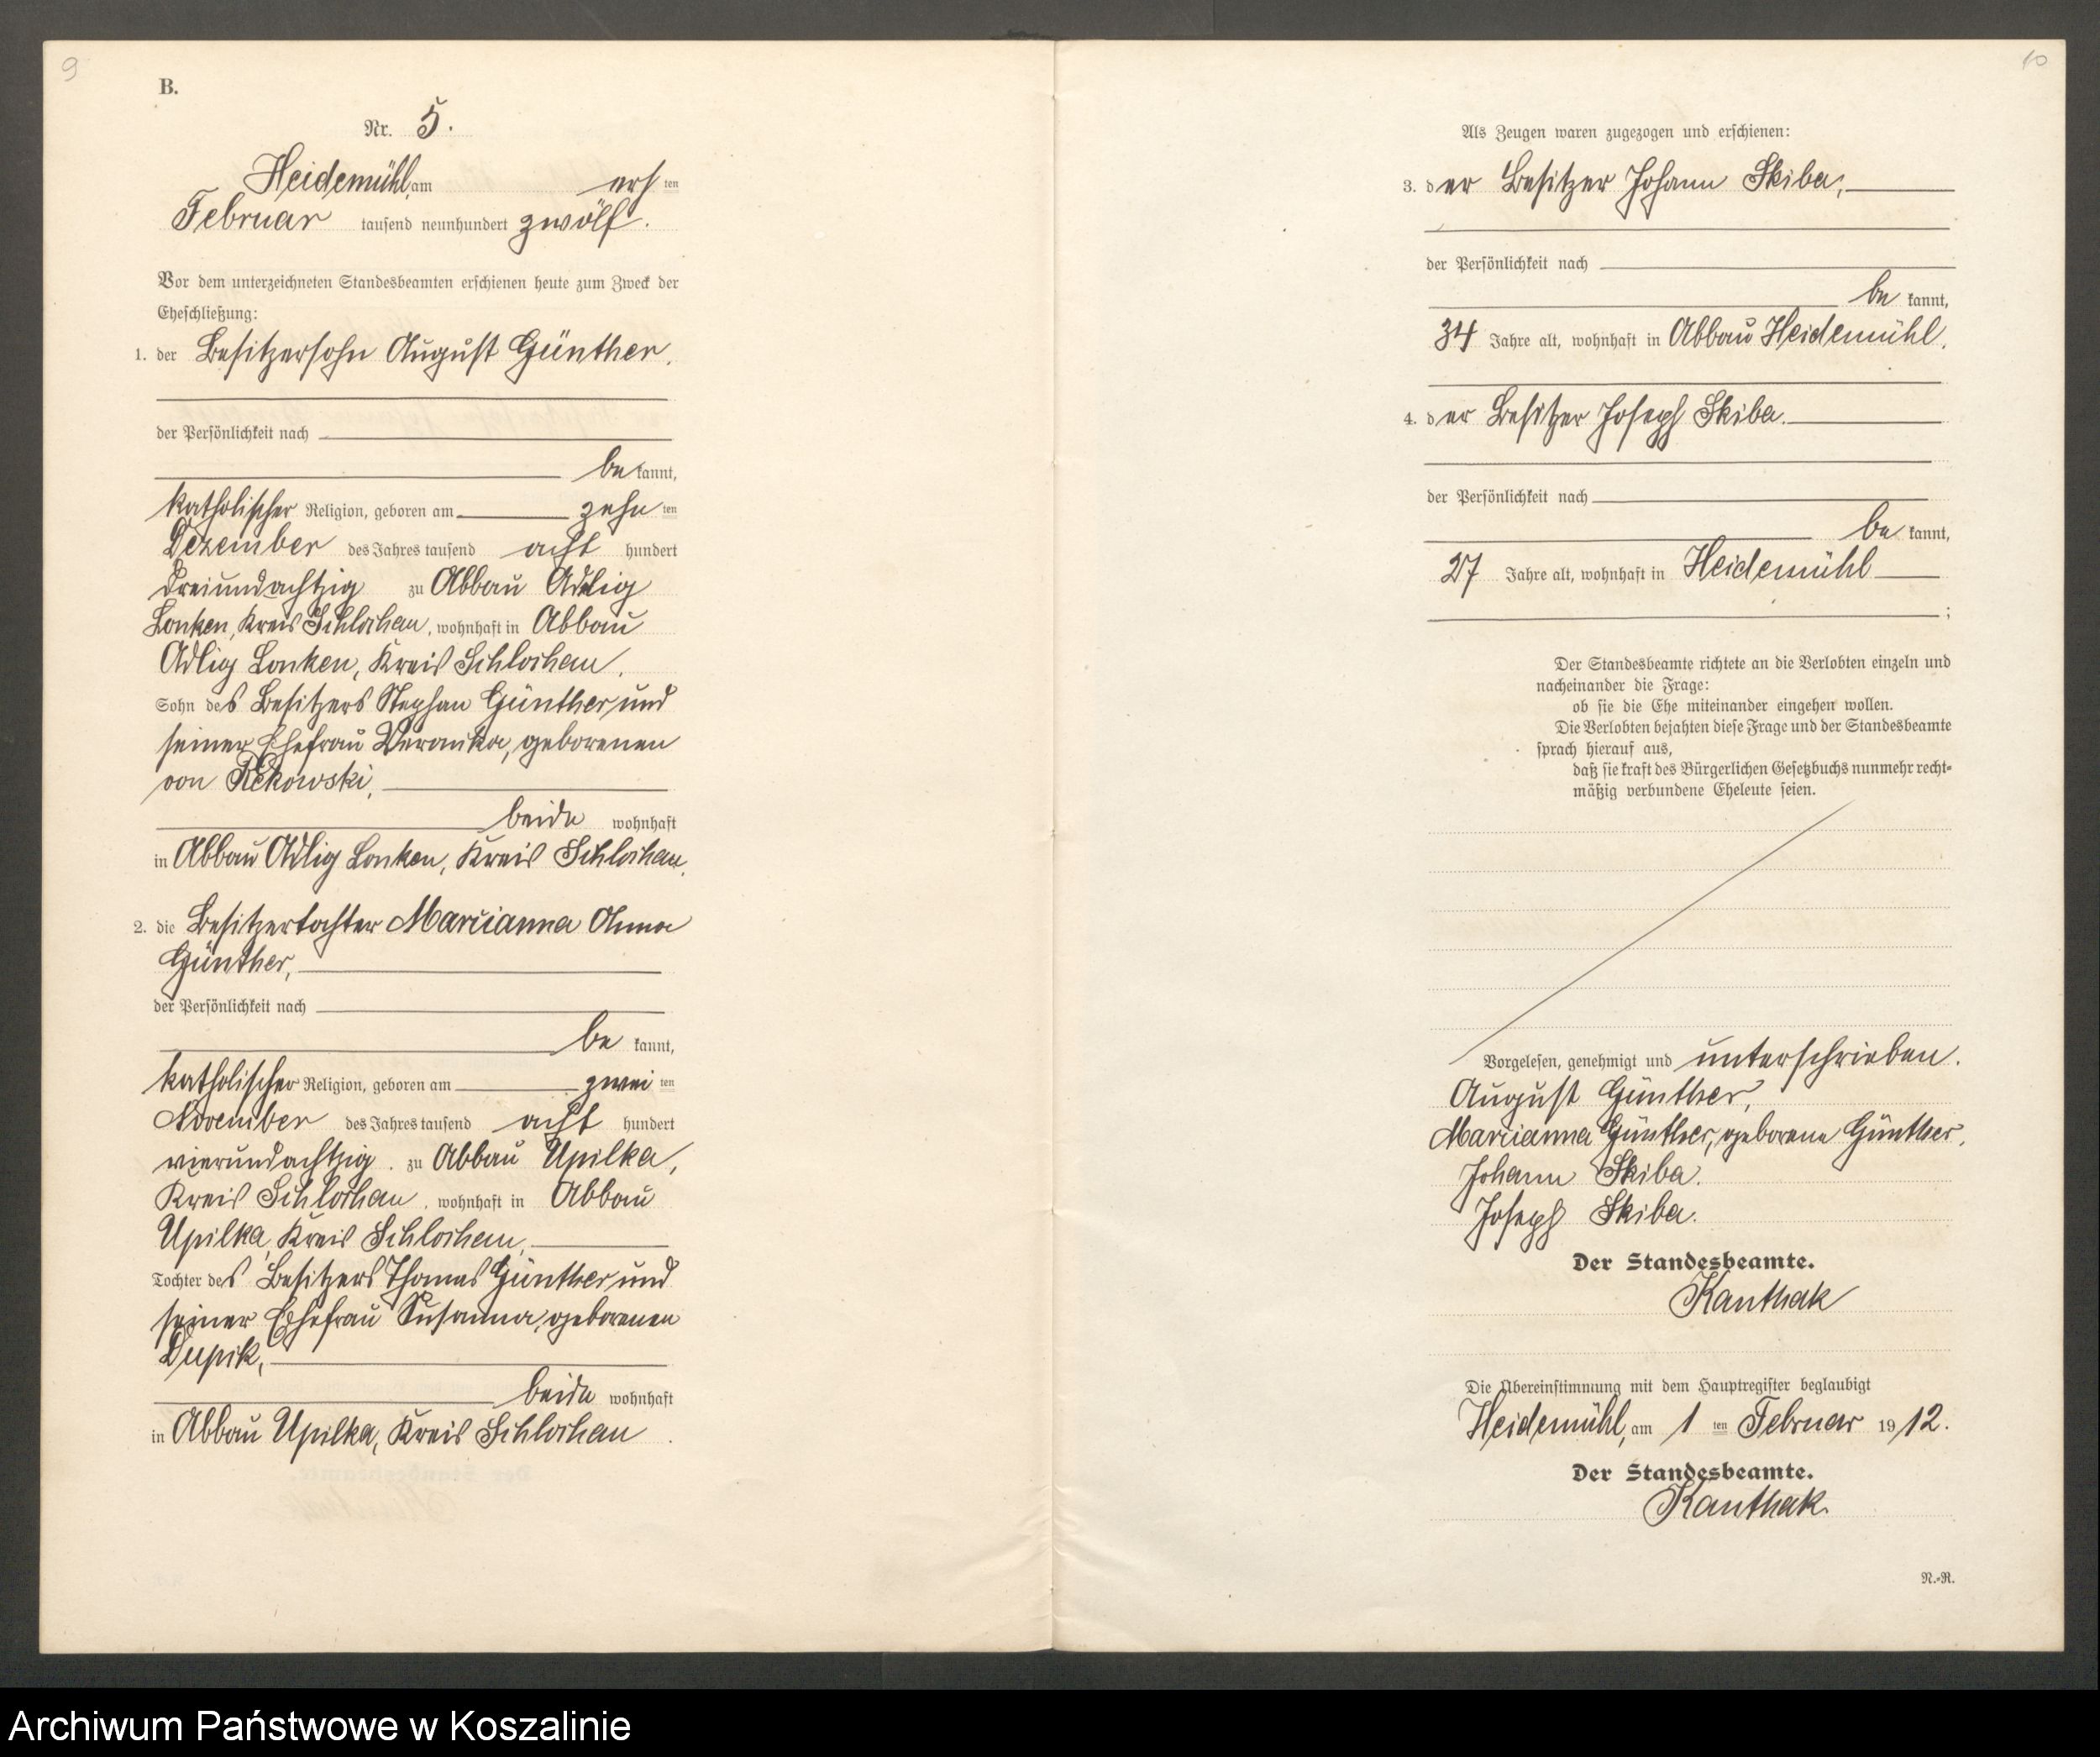 9
B.
Nr. 5.
Heidemühl, am ersten
Februar tausend neunhundert zwölf.
Vor dem unterzeichneten Standesbeamten erschienen heute zum Zweck der
Eheschließung:
1. der Besitzersohn August Günther,
der Persönlichkeit nach
bekannt,
katholischer Religion, geboren am zehnten
Dezember des Jahres tausend acht hundert
dreiundachtzig zu Abbau Adlig
Lonken, Kreis Schlochau, wohnhaft in Abbau
Adlig Lonken, Kreis Schlochau,
Sohn des Besitzers Stephan Günther und
seiner Ehefrau Veronika, geborenen
von Rekowski,
beide wohnhaft
in Abbau Adlig Lonken, Kreis Schlochau.
2. die Besitzertochter Marcianna Anna
Günther,
der Persönlichkeit nach
bekannt,
katholischer Religion, geboren am zweiten
November des Jahres tausend acht hundert
vierundachtzig. zu Abbau Upilka,
Kreis Schlochau, wohnhaft in Abbau
Upilka, Kreis Schlochau,
Tochter des Besitzers Thomas Günther und
seiner Ehefrau Susanna, geborenen
Dupik,
beide wohnhaft
in Abbau Upilka, Kreis Schlochau.
10
Als Zeugen waren zugezogen und erschienen:
3. der Besitzer Johann Skiba,
der Persönlichkeit nach
bekannt,
34 Jahre alt, wohnhaft in Abbau Heidemühl,
4. der Besitzer Joseph Skiba.
der Persönlichkeit nach
bekannt,
27 Jahre alt, wohnhaft in Heidemühl
;
Der Standesbeamte richtete an die Verlobten einzeln und
nacheinander die Frage:
ob sie die Ehe miteinander eingehen wollen.
Die Verlobten bejahten diese Frage und der Standesbeamte
sprach hierauf aus,
daß sie kraft des Bürgerlichen Gesetzbuchs nunmehr recht-
mäßig verbundene Eheleute seien.
Vorgelesen, genehmigt und unterschrieben.
August Günther,
Marcianna Günther, geborene Günther,
Johann Skiba.
Joseph Skiba.
Der Standesbeamte.
Kanthak
Die Übereinstimmung mit dem Hauptregister beglaubigt
Heidemühl, am 1 ten Februar 1912.
Der Standesbeamte.
Kanthak.
N.-R.
Archiwum Państwowe w Koszalinie